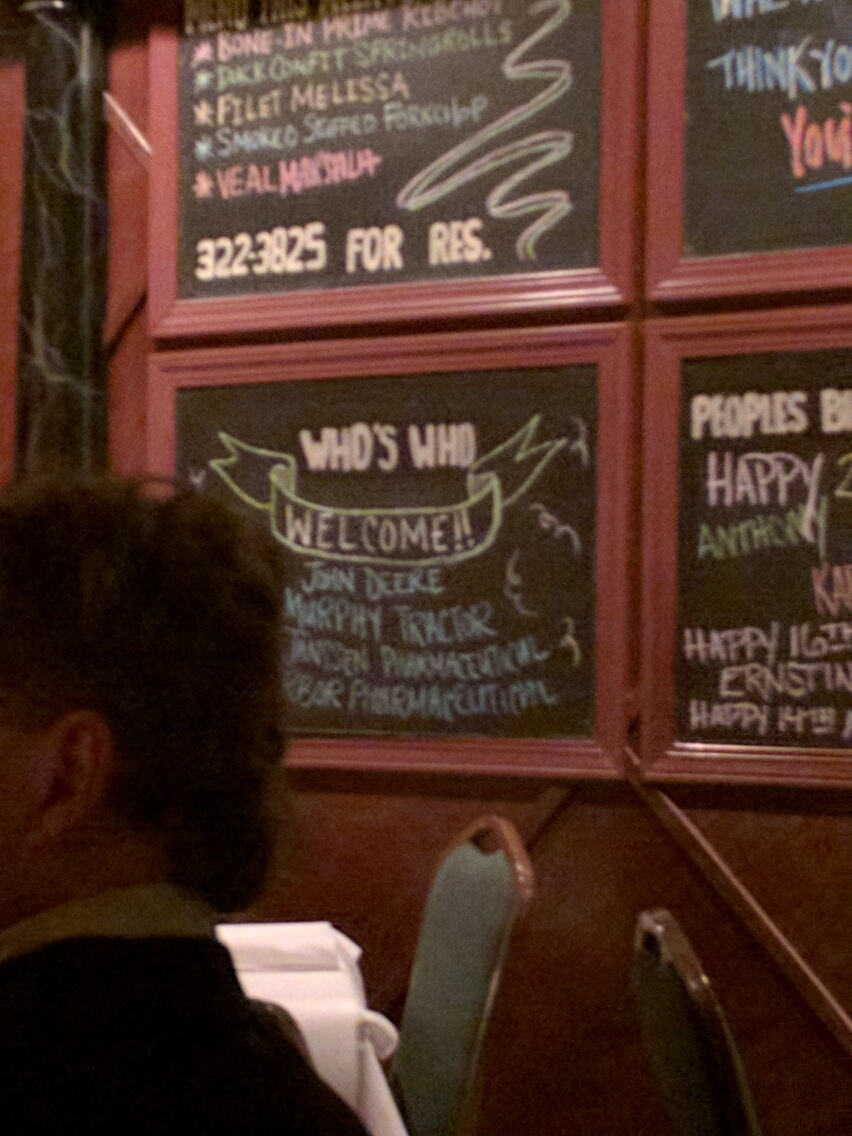 MENU THIS
*BONE-IN PRIME KEBCHOP
*DUCK CONFIT SPRINGROLLS
*FILET MELISSA
*SMOKED STUFFED PORKCHOP
*VEAL MARSALA
322-3825 FOR RES.
THINK YO
YOU'
WHO'S WHO
WELCOME!!
JOHN DEERE
MURPHY TRACTOR
JANSSEN PHARMACEUTICAL
PHARMACEUTICAL
PEOPLES
HAPPY 2
ANTHONY
HAPPY 16TH
ERNSTIN
HAPPY 14TH